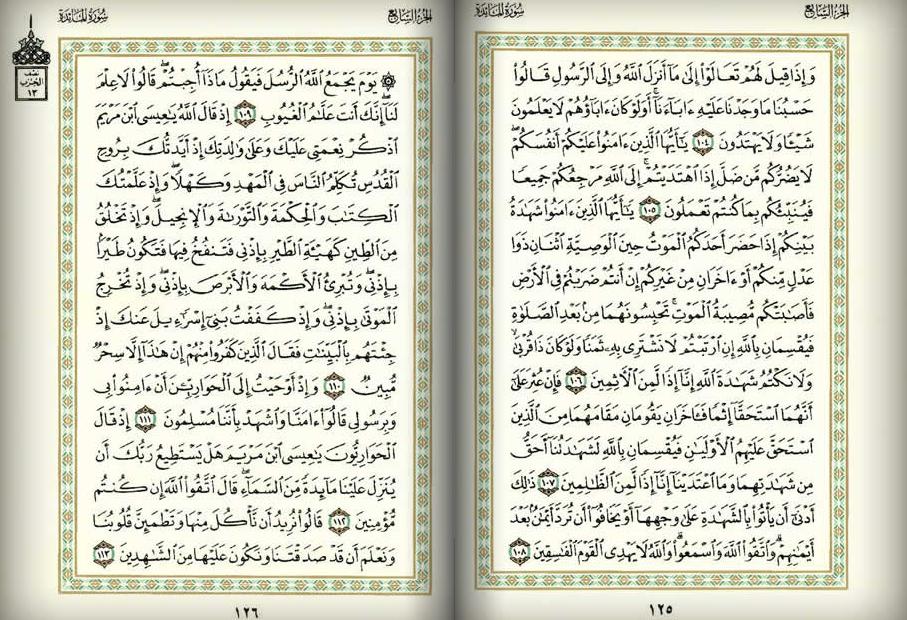 الجزء السابع
سورة المائدة
وَإِذَا قِيلَ لَهُمْ تَعَالَوْا۟ إِلَىٰ مَآ أَنزَلَ ٱللَّهُ وَإِلَى ٱلرَّسُولِ قَالُوا۟
حَسْبُنَا مَا وَجَدْنَا عَلَيْهِ ءَابَآءَنَآ ۚ أَوَلَوْ كَانَ ءَابَآؤُهُمْ لَا يَعْلَمُونَ
شَيْـًٔا وَلَا يَهْتَدُونَ ١٠٤ يَـٰٓأَيُّهَا ٱلَّذِينَ ءَامَنُوا۟ عَلَيْكُمْ أَنفُسَكُمْ ۖ
لَا يَضُرُّكُم مَّن ضَلَّ إِذَا ٱهْتَدَيْتُمْ ۚ إِلَى ٱللَّهِ مَرْجِعُكُمْ جَمِيعًا
فَيُنَبِّئُكُم بِمَا كُنتُمْ تَعْمَلُونَ ١٠٥ يَـٰٓأَيُّهَا ٱلَّذِينَ ءَامَنُوا۟ شَهَـٰدَةُ
بَيْنِكُمْ إِذَا حَضَرَ أَحَدَكُمُ ٱلْمَوْتُ حِينَ ٱلْوَصِيَّةِ ٱثْنَانِ ذَوَا
عَدْلٍ مِّنكُمْ أَوْ ءَاخَرَانِ مِنْ غَيْرِكُمْ إِنْ أَنتُمْ ضَرَبْتُمْ فِى ٱلْأَرْضِ
فَأَصَـٰبَتْكُم مُّصِيبَةُ ٱلْمَوْتِ ۚ تَحْبِسُونَهُمَا مِنۢ بَعْدِ ٱلصَّلَوٰةِ
فَيُقْسِمَانِ بِٱللَّهِ إِنِ ٱرْتَبْتُمْ لَا نَشْتَرِى بِهِۦ ثَمَنًا وَلَوْ كَانَ ذَا قُرْبَىٰ ۙ
وَلَا نَكْتُمُ شَهَـٰدَةَ ٱللَّهِ إِنَّآ إِذًا لَّمِنَ ٱلْـَٔاثِمِينَ ١٠٦ فَإِنْ عُثِرَ عَلَىٰٓ
أَنَّهُمَا ٱسْتَحَقَّآ إِثْمًا فَـَٔاخَرَانِ يَقُومَانِ مَقَامَهُمَا مِنَ ٱلَّذِينَ
ٱسْتَحَقَّ عَلَيْهِمُ ٱلْأَوْلَيَـٰنِ فَيُقْسِمَانِ بِٱللَّهِ لَشَهَـٰدَتُنَآ أَحَقُّ
مِن شَهَـٰدَتِهِمَا وَمَا ٱعْتَدَيْنَآ إِنَّآ إِذًا لَّمِنَ ٱلظَّـٰلِمِينَ ١٠٧ ذَٰلِكَ
أَدْنَىٰٓ أَن يَأْتُوا۟ بِٱلشَّهَـٰدَةِ عَلَىٰ وَجْهِهَآ أَوْ يَخَافُوٓا۟ أَن تُرَدَّ أَيْمَـٰنٌۢ بَعْدَ
أَيْمَـٰنِهِمْ ۗ وَٱتَّقُوا۟ ٱللَّهَ وَٱسْمَعُوا۟ ۗ وَٱللَّهُ لَا يَهْدِى ٱلْقَوْمَ ٱلْفَـٰسِقِينَ ١٠٨
١٢٥
الجزء السابع
سورة المائدة
نصف
الحزب
١٣
۞ يَوْمَ يَجْمَعُ ٱللَّهُ ٱلرُّسُلَ فَيَقُولُ مَاذَآ أُجِبْتُمْ ۖ قَالُوا۟ لَا عِلْمَ
لَنَآ ۖ إِنَّكَ أَنتَ عَلَّـٰمُ ٱلْغُيُوبِ ١٠٩ إِذْ قَالَ ٱللَّهُ يَـٰعِيسَى ٱبْنَ مَرْيَمَ
ٱذْكُرْ نِعْمَتِى عَلَيْكَ وَعَلَىٰ وَٰلِدَتِكَ إِذْ أَيَّدتُّكَ بِرُوحِ
ٱلْقُدُسِ تُكَلِّمُ ٱلنَّاسَ فِى ٱلْمَهْدِ وَكَهْلًا ۖ وَإِذْ عَلَّمْتُكَ
ٱلْكِتَـٰبَ وَٱلْحِكْمَةَ وَٱلتَّوْرَىٰةَ وَٱلْإِنجِيلَ ۖ وَإِذْ تَخْلُقُ
مِنَ ٱلطِّينِ كَهَيْـَٔةِ ٱلطَّيْرِ بِإِذْنِى فَتَنفُخُ فِيهَا فَتَكُونُ طَيْرًۢا
بِإِذْنِى ۖ وَتُبْرِئُ ٱلْأَكْمَهَ وَٱلْأَبْرَصَ بِإِذْنِى ۖ وَإِذْ تُخْرِجُ
ٱلْمَوْتَىٰ بِإِذْنِى ۖ وَإِذْ كَفَفْتُ بَنِىٓ إِسْرَٰٓءِيلَ عَنكَ إِذْ
جِئْتَهُم بِٱلْبَيِّنَـٰتِ فَقَالَ ٱلَّذِينَ كَفَرُوا۟ مِنْهُمْ إِنْ هَـٰذَآ إِلَّا سِحْرٌ
مُّبِينٌ ١١٠ وَإِذْ أَوْحَيْتُ إِلَى ٱلْحَوَارِيِّـۧنَ أَنْ ءَامِنُوا۟ بِى
وَبِرَسُولِى قَالُوٓا۟ ءَامَنَّا وَٱشْهَدْ بِأَنَّنَا مُسْلِمُونَ ١١١ إِذْ قَالَ
ٱلْحَوَارِيُّونَ يَـٰعِيسَى ٱبْنَ مَرْيَمَ هَلْ يَسْتَطِيعُ رَبُّكَ أَن
يُنَزِّلَ عَلَيْنَا مَآئِدَةً مِّنَ ٱلسَّمَآءِ ۖ قَالَ ٱتَّقُوا۟ ٱللَّهَ إِن كُنتُم
مُّؤْمِنِينَ ١١٢ قَالُوا۟ نُرِيدُ أَن نَّأْكُلَ مِنْهَا وَتَطْمَئِنَّ قُلُوبُنَا
وَنَعْلَمَ أَن قَدْ صَدَقْتَنَا وَنَكُونَ عَلَيْهَا مِنَ ٱلشَّـٰهِدِينَ ١١٣
١٢٦